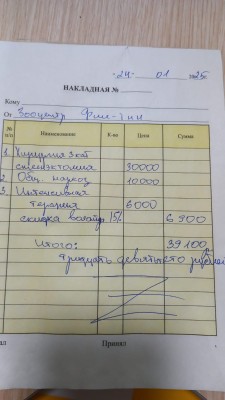 "24" 01 2025г.
НАКЛАДНАЯ №
Кому
От Зооцентр
№ п/п Наименование К-во Цена Сумма
1. Хирургия 3 кат
спленэктомия 30000
2. Общ. наркоз 10000
3. Интенсивная
терапия 6000
скидка 15% 6 900
Итого: 39 100
Тридцать девять сто рублей
Принял